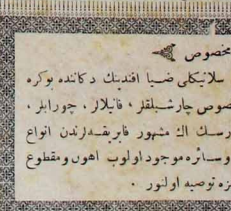 مخصوص
سلانیكلی ضیا افندینك دكاننده بوكره
صوص چارشبلقلر ، فانیلالر ، چورابلر ،
رسك اك مشهور فابریقه‌لرندن انواع
وسائره موجود اولوب اهون ومقطوع
زه توصیه اولنور .